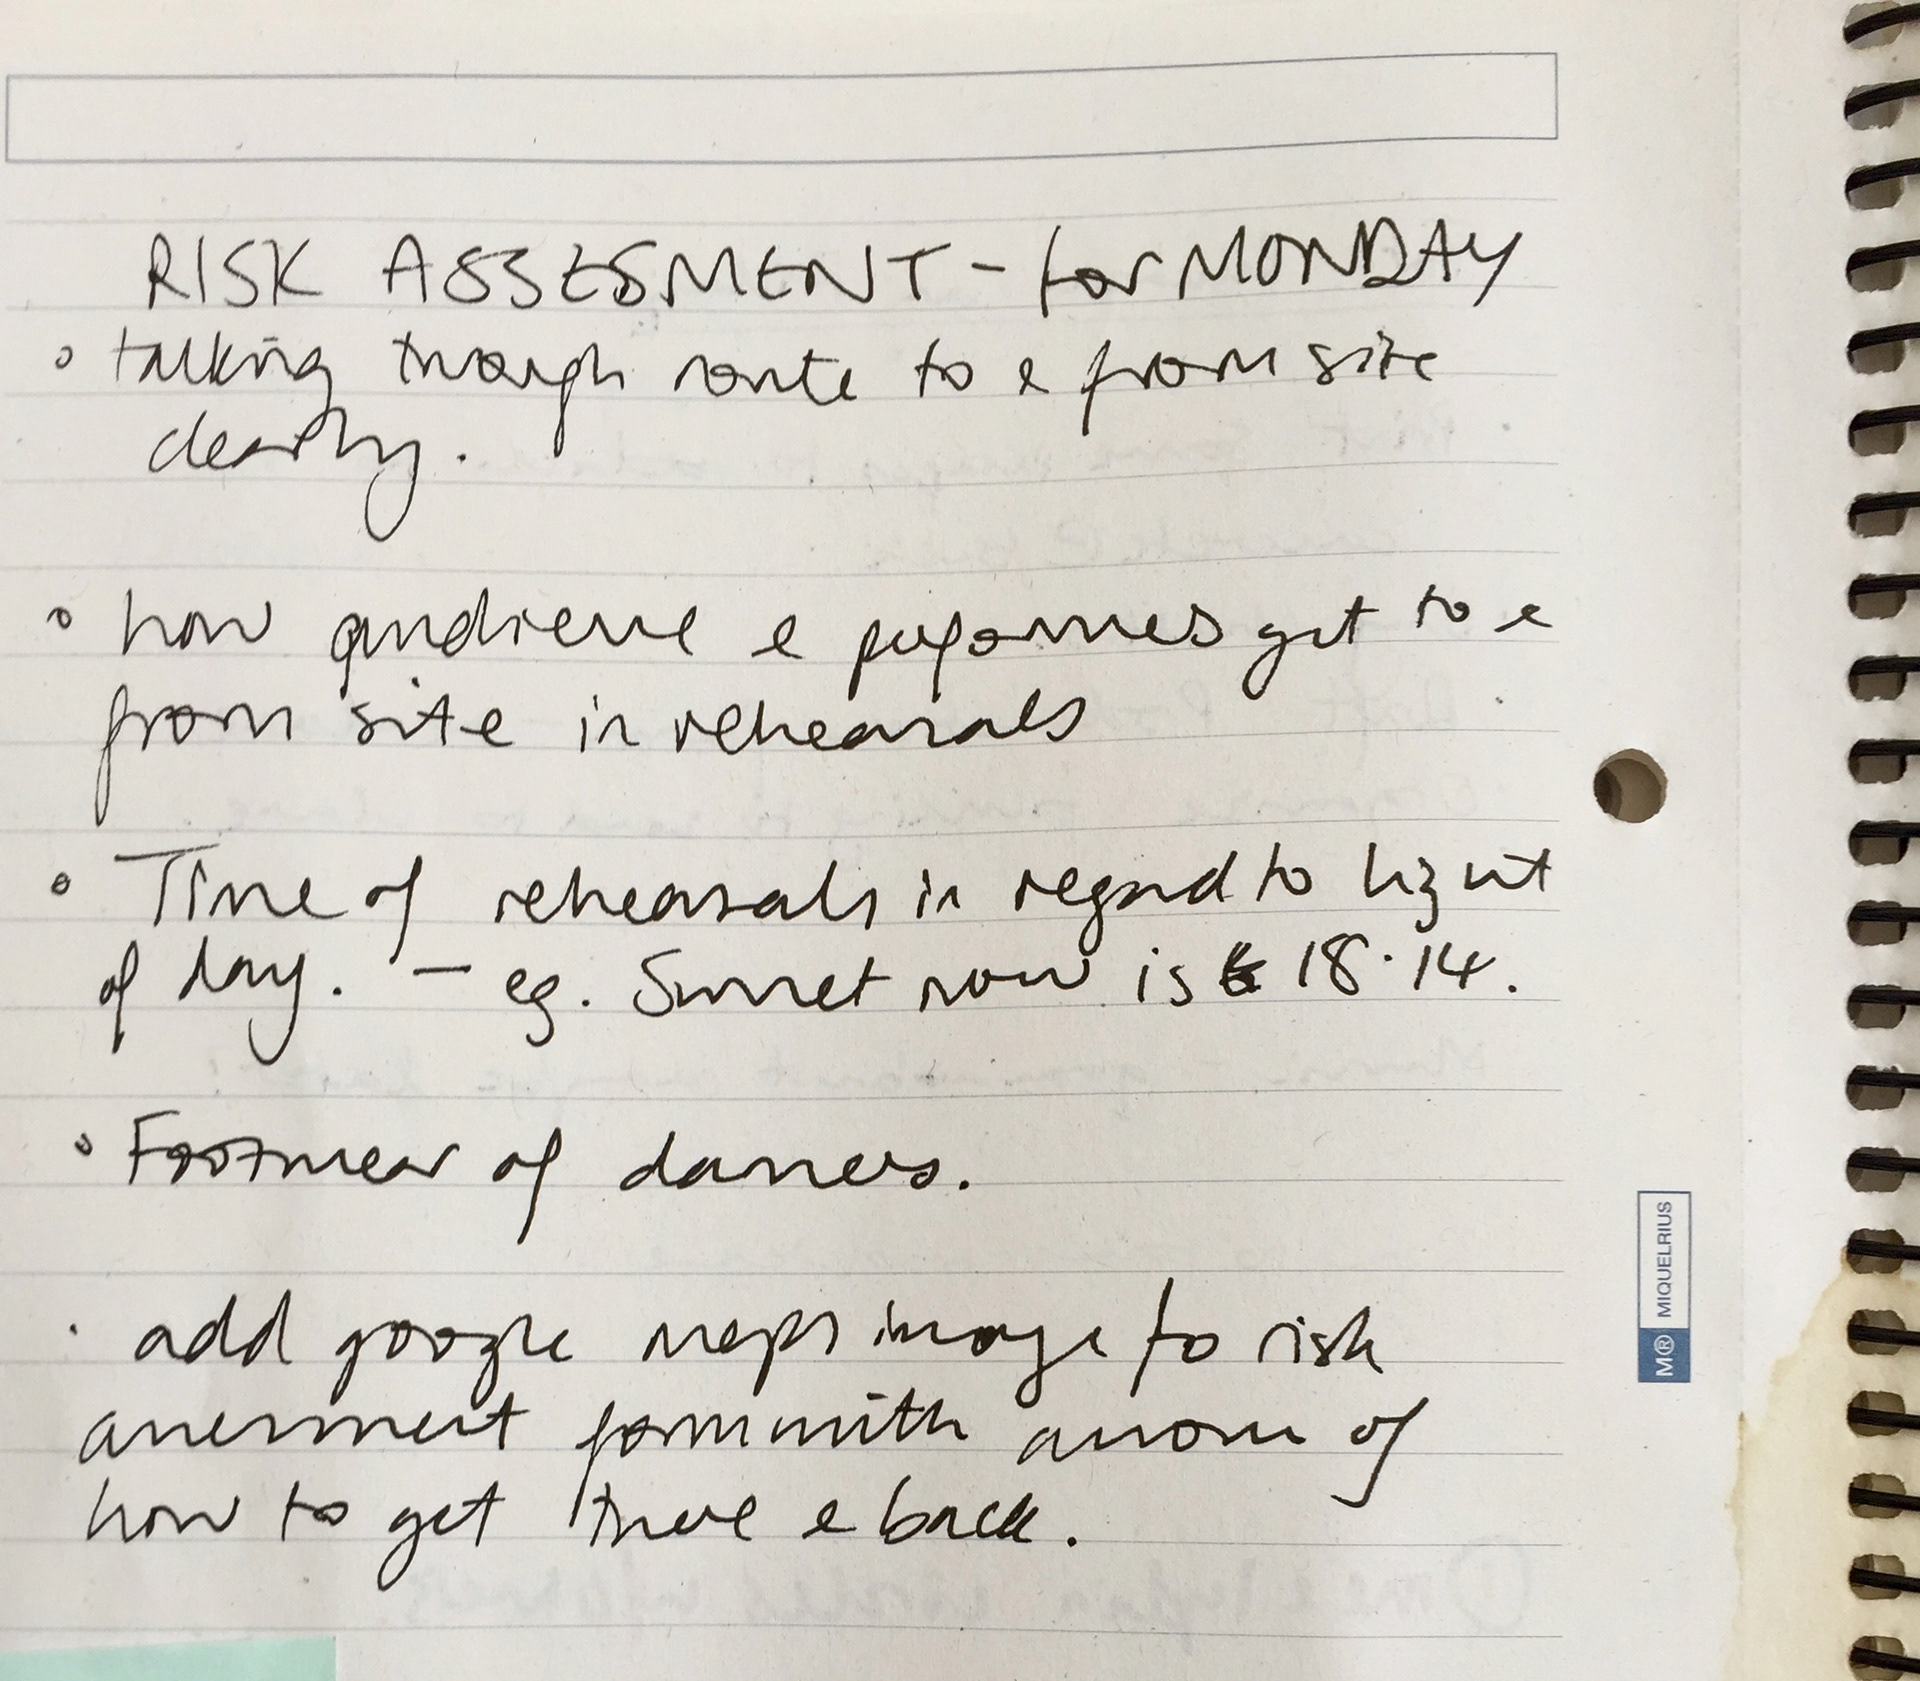 RISK ASSESMENT - for MONDAY
• talking through route to & from site
clearly.
• how audience & performers get to &
from site in rehearsals
• Time of rehearsals in regard to light
of day. – eg. Sunset now is 18.14.
• Footwear of dancers.
• add google maps image to risk
assessment form with arrows of
how to get there & back.
M® MIQUELRIUS